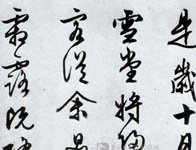 是歲十月
雪堂將歸
客從余過
霜露既降